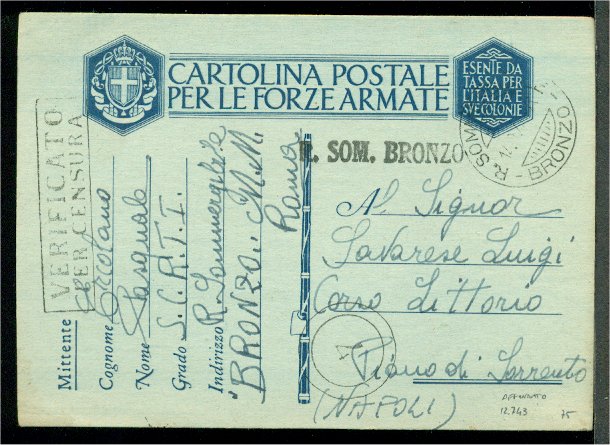 CARTOLINA POSTALE
PER LE FORZE ARMATE
ESENTE DA
TASSA PER
L'ITALIA E
SVE COLONIE
VERIFICATO
PER CENSURA
R. SOM. BRONZO
R. SOM BRONZO
Mittente
Cognome Ercolano
Nome Pasquale
Grado S.C.R.T.I.
Indirizzo R. Sommergibile
"BRONZO" M.M.
Roma
Al Signor
Savarese Luigi
Corso Littorio
Piano di Sorrento
(NAPOLI)
4
12.743
75